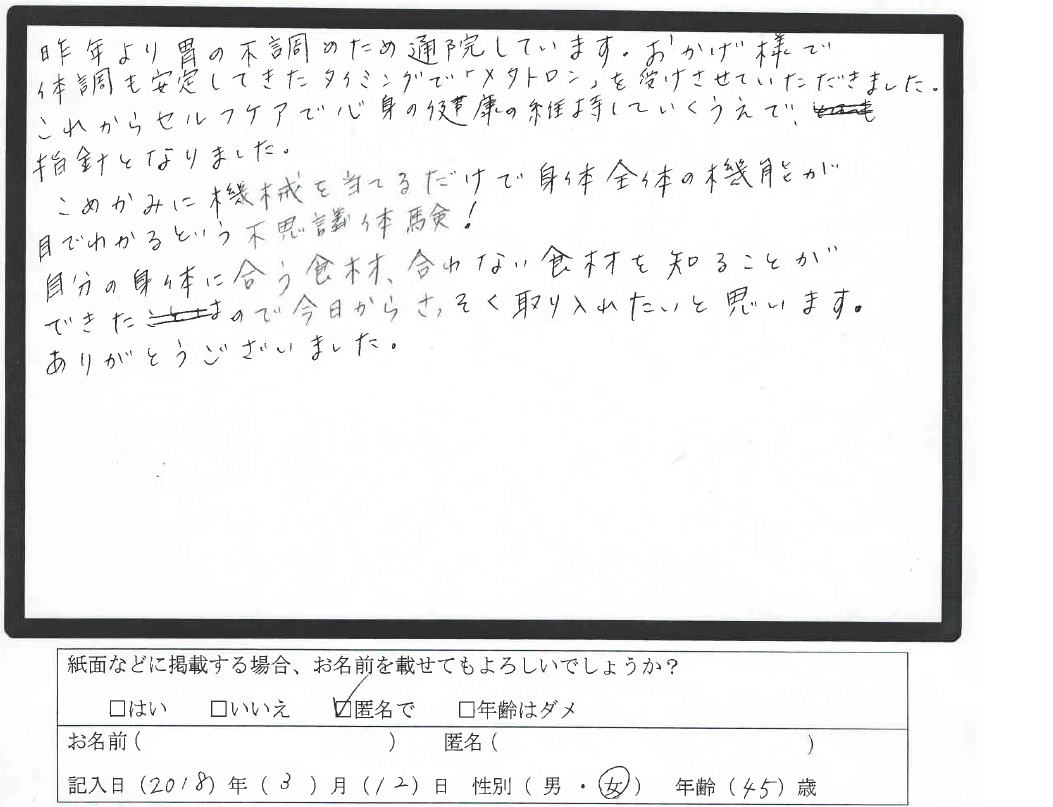 昨年より胃の不調のため通院しています。おかげ様で
体調も安定してきたタイミングで「メタトロン」を受けさせていただきました。
これからセルフケアで心身の健康の維持していくうえで、
指針となりました。
こめかみに機械を当てるだけで身体全体の機能が
目でわかるという不思議体験!
自分の身体に合う食材、合わない食材を知ることが
できたので今日からさっそく取り入れたいと思います。
ありがとうございました。
紙面などに掲載する場合、お名前を載せてもよろしいでしょうか?
□はい □いいえ ☑匿名で □年齢はダメ
お名前( ) 匿名( )
記入日(2018)年(3)月(12)日 性別(男・女) 年齢(45)歳